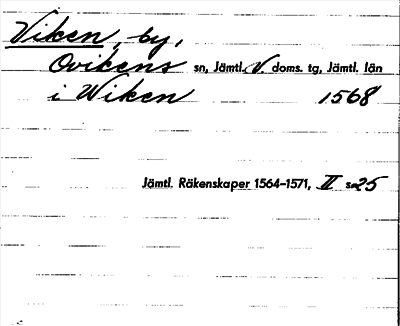 Viken, by,
Ovikens sn, Jämtl. V. doms. tg, Jämtl. län
i Wiken 1568
Jämtl. Räkenskaper 1564–1571, II s. 25